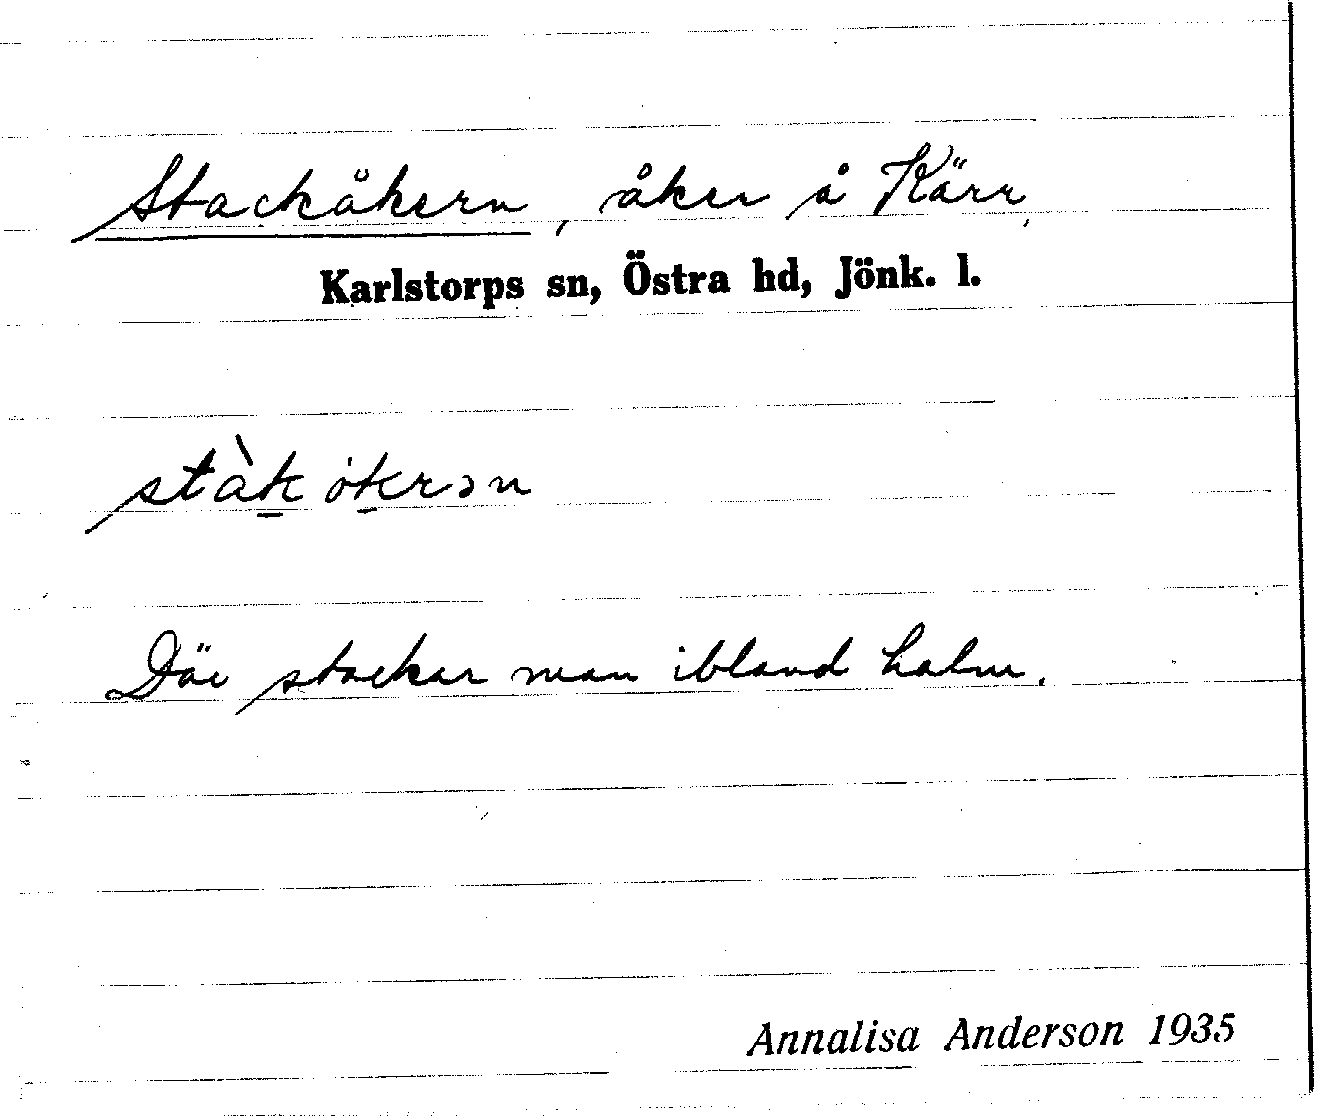 Stackåkern, åker å Kärr,
Karlstorps sn, Östra hd, Jönk. l.
stàk ókrən
Där stackar man ibland halm.
Annalisa Anderson 1935